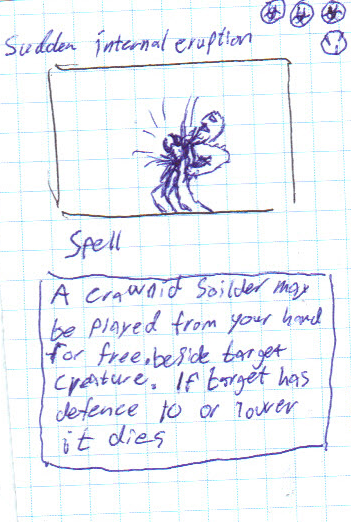 Sudden internal eruption
Spell
A crawnid Soilder may
be played from your hand
for free, beside target
creature. If target has
defence 10 or lower
it dies